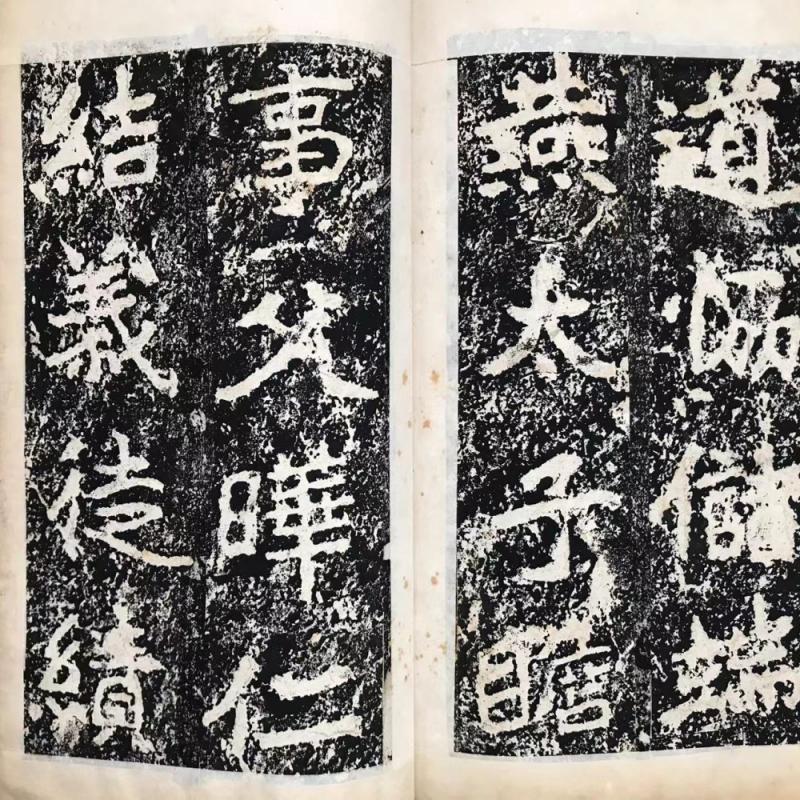 道儲端
燕太子瞻
事父曄仁
結義徒績